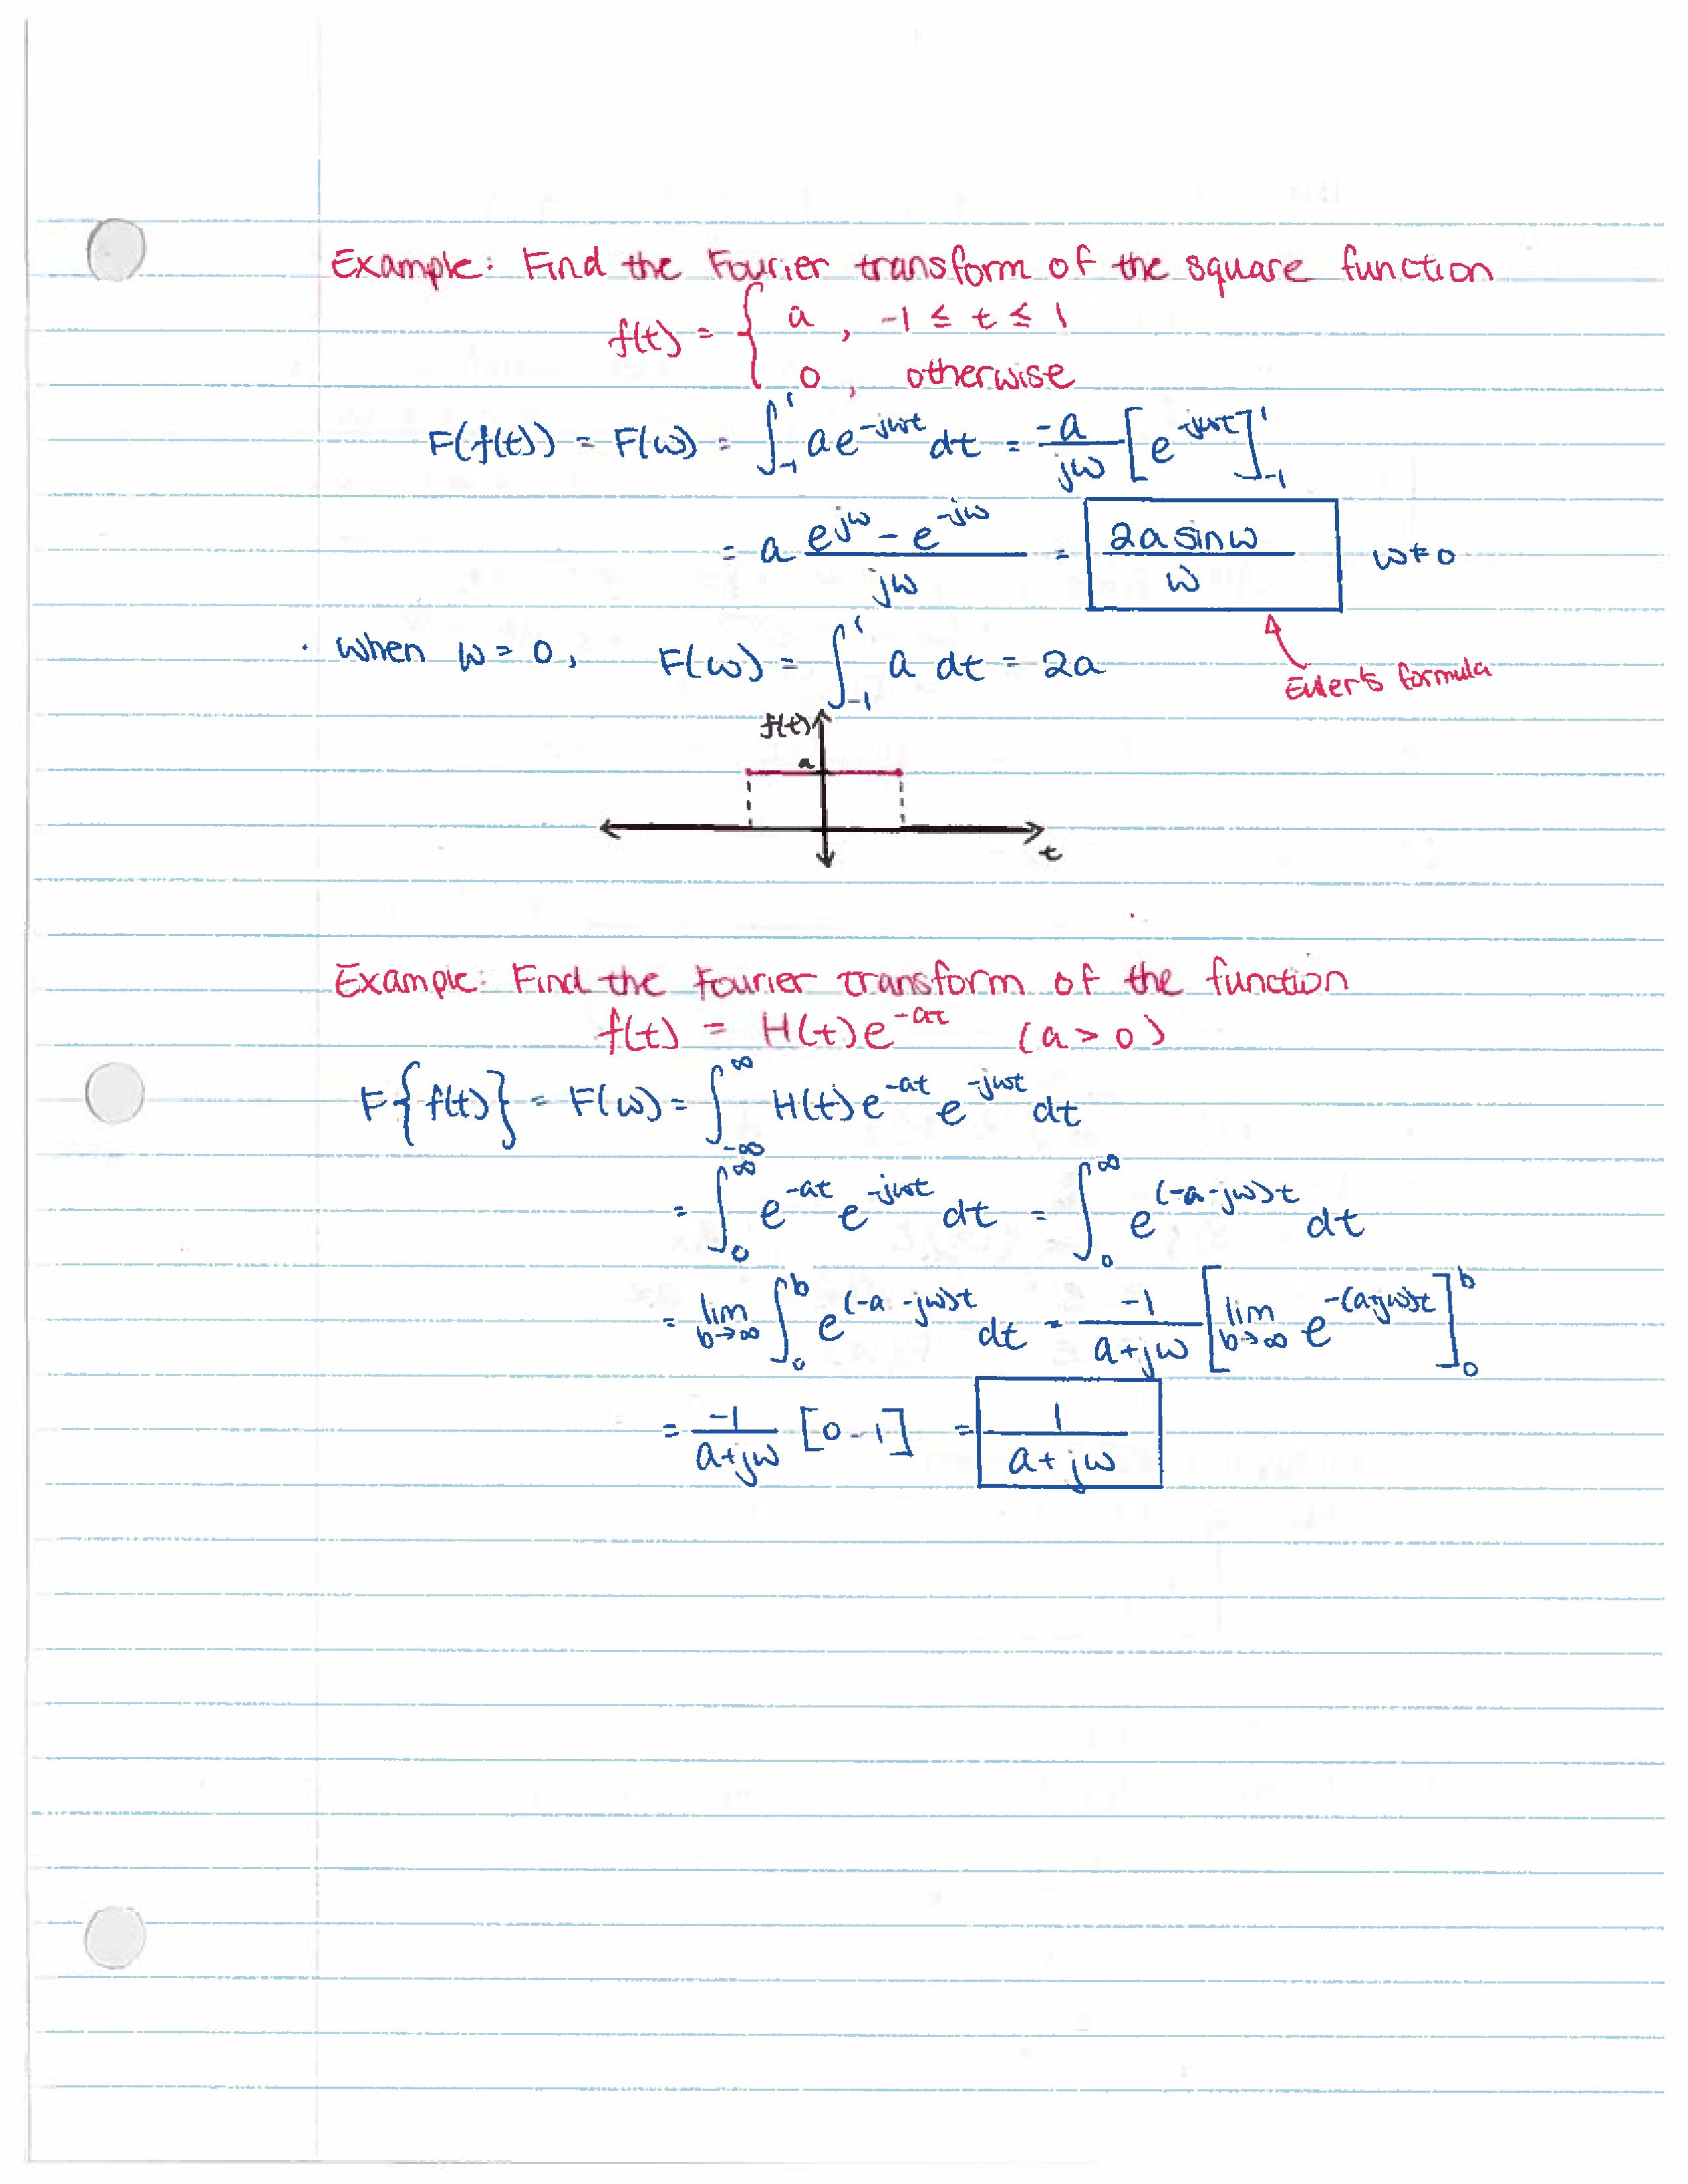 Example: Find the Fourier transform of the square function
f(t) = { a , -1 ≤ t ≤ 1
0 , otherwise
F(f(t)) = F(ω) = ∫_{-1}^{1} ae^{-jωt} dt = -a/jω [e^{-jωt}]_{-1}^{1}
= a (e^{jω} - e^{-jω})/jω = 2a sinω/ω ω≠0
· When ω = 0, F(ω) = ∫_{-1}^{1} a dt = 2a
Euler's formula
f(t)
a
t
Example: Find the Fourier transform of the function
f(t) = H(t)e^{-at} (a > 0)
F{f(t)} = F(ω) = ∫_{-∞}^{∞} H(t)e^{-at} e^{-jωt} dt
= ∫_{0}^{∞} e^{-at} e^{-jωt} dt = ∫_{0}^{∞} e^{(-a-jω)t} dt
= lim_{b→∞} ∫_{0}^{b} e^{(-a-jω)t} dt = -1/(a+jω) [lim_{b→∞} e^{-(a+jω)t}]_{0}^{b}
= -1/(a+jω) [0-1] = 1/(a+jω)